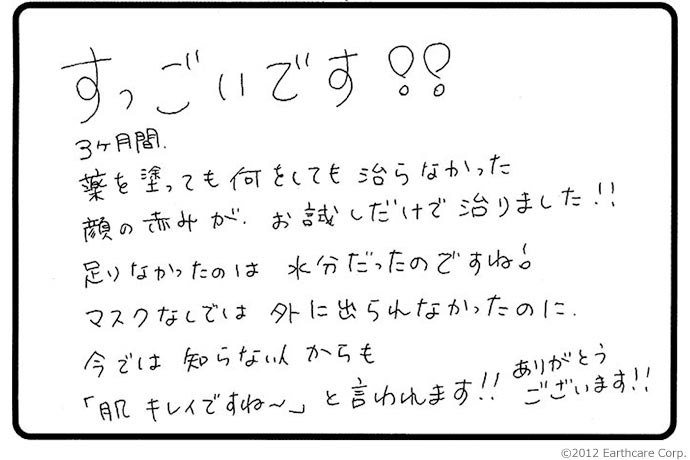 すっごいです!!
3ヶ月間.
薬を塗っても何をしても治らなかった
顔の赤みが.お試しだけで治りました!!
足りなかったのは水分だったのですね!
マスクなしでは外に出られなかったのに.
今では知らない人からも
「肌キレイですね〜」と言われます!!
ありがとう
ございます!!
©2012 Earthcare Corp.